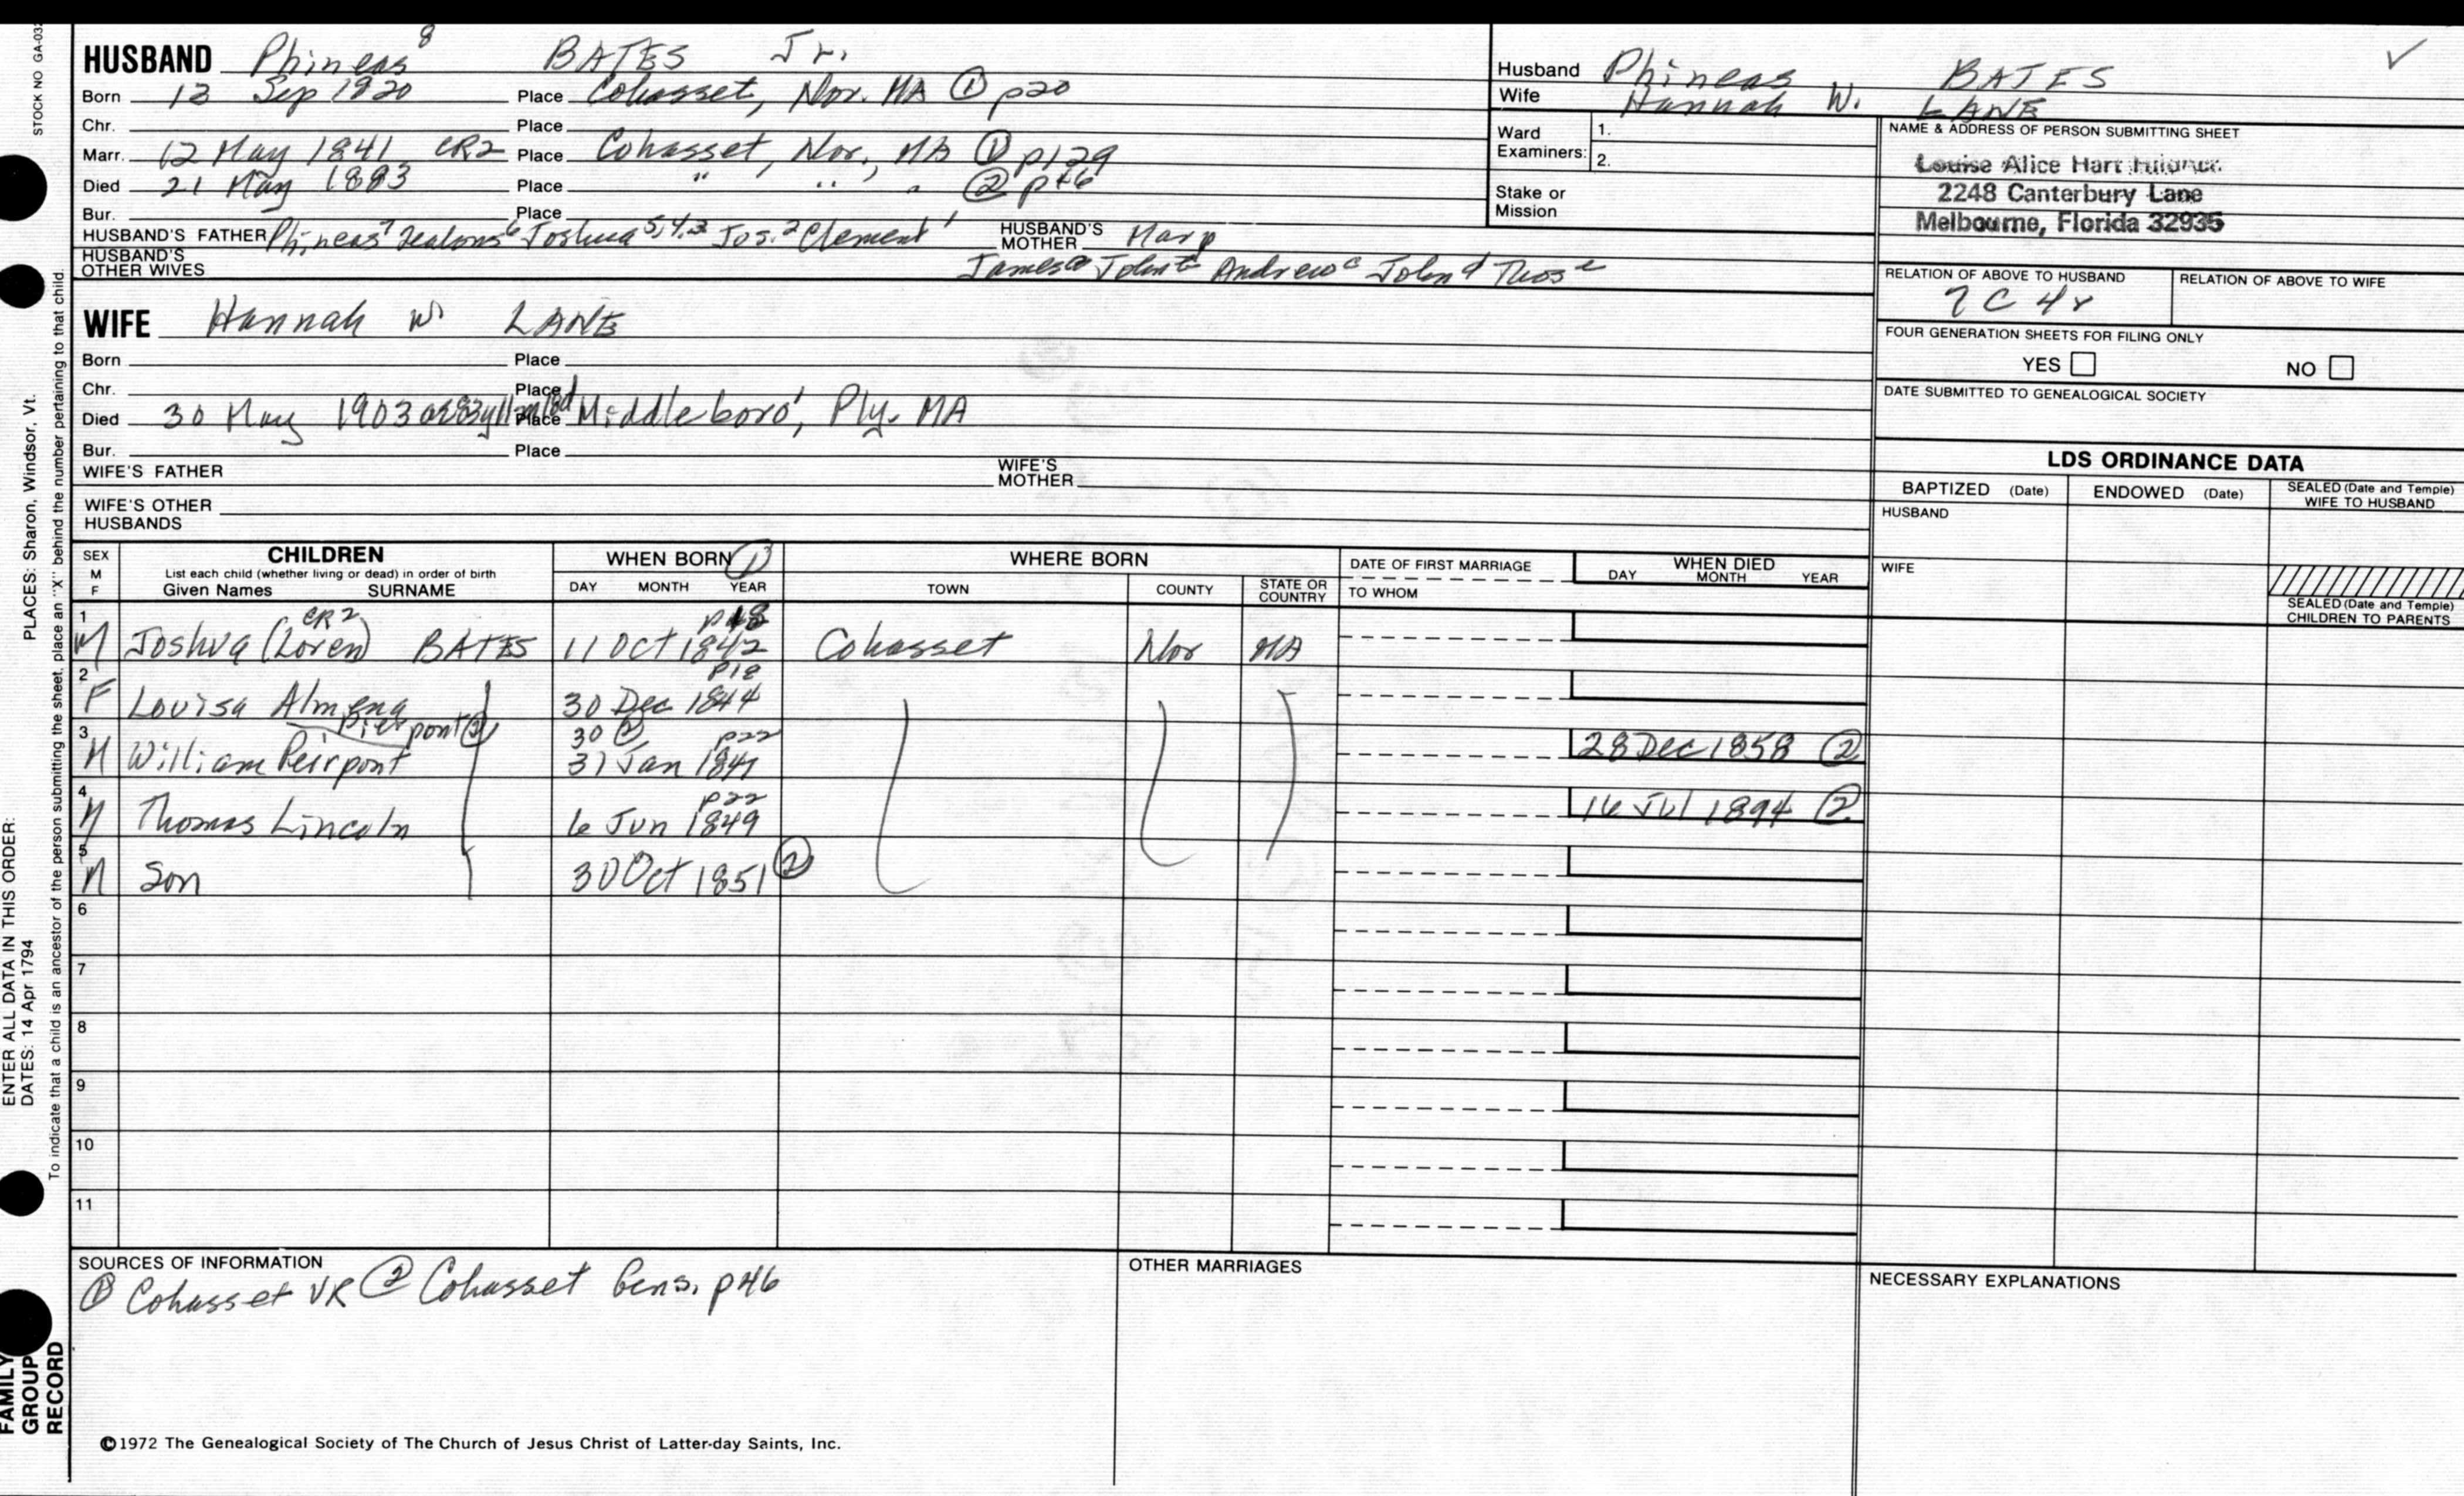 STOCK NO GA-03
HUSBAND Phineas 8 BATES Jr.
Born 13 Sep 1820 Place Cohasset, Nor. MA ① p20
Chr. Place
Marr. 12 May 1841 CR2 Place Cohasset, Nor., MA ① p129
Died 21 May 1883 Place " " " ② p46
Bur. Place
HUSBAND'S FATHER Phineas 7 Zealous 6 Joshua 5,4,3 Jos. 2 Clement 1 HUSBAND'S MOTHER Mary
HUSBAND'S OTHER WIVES James a John b Andrew c John d Thos e
WIFE Hannah W LANE
Born Place
Chr. Place
Died 30 May 1903 ae 83y 11m 18d Place Middleboro', Ply. MA
Bur. Place
WIFE'S FATHER WIFE'S MOTHER
WIFE'S OTHER HUSBANDS
Husband Phineas BATES ✓
Wife Hannah W. LANE
Ward Examiners: 1.
2.
Stake or Mission
NAME & ADDRESS OF PERSON SUBMITTING SHEET
Louise Alice Hart
2248 Canterbury Lane
Melbourne, Florida 32935
RELATION OF ABOVE TO HUSBAND RELATION OF ABOVE TO WIFE
7C 4r
FOUR GENERATION SHEETS FOR FILING ONLY
YES NO
DATE SUBMITTED TO GENEALOGICAL SOCIETY
LDS ORDINANCE DATA
BAPTIZED (Date) ENDOWED (Date) SEALED (Date and Temple) WIFE TO HUSBAND
HUSBAND
WIFE
SEALED (Date and Temple) CHILDREN TO PARENTS
SEX M F
CHILDREN
List each child (whether living or dead) in order of birth
Given Names SURNAME
WHEN BORN ①
DAY MONTH YEAR
WHERE BORN
TOWN COUNTY STATE OR COUNTRY
DATE OF FIRST MARRIAGE
TO WHOM
WHEN DIED
DAY MONTH YEAR
CR2 p18
1 M Joshua (Loren) BATES 11 Oct 1842 Cohasset Nor MA
p18
2 F Louisa Almena 30 Dec 1844
Pierpont ② 30 ② p22
3 M William Peirpont 31 Jan 1847 28 Dec 1858 ②
p22
4 M Thomas Lincoln 6 Jun 1849 16 Jul 1894 ②
5 M Son 30 Oct 1851 ②
6
7
8
9
10
11
SOURCES OF INFORMATION
① Cohasset VR ② Cohasset Gens. p46
OTHER MARRIAGES
NECESSARY EXPLANATIONS
©1972 The Genealogical Society of The Church of Jesus Christ of Latter-day Saints, Inc.
ENTER ALL DATA IN THIS ORDER:
DATES: 14 Apr 1794
PLACES: Sharon, Windsor, Vt.
To indicate that a child is an ancestor of the person submitting the sheet, place an "X" behind the number pertaining to that child.
FAMILY GROUP RECORD